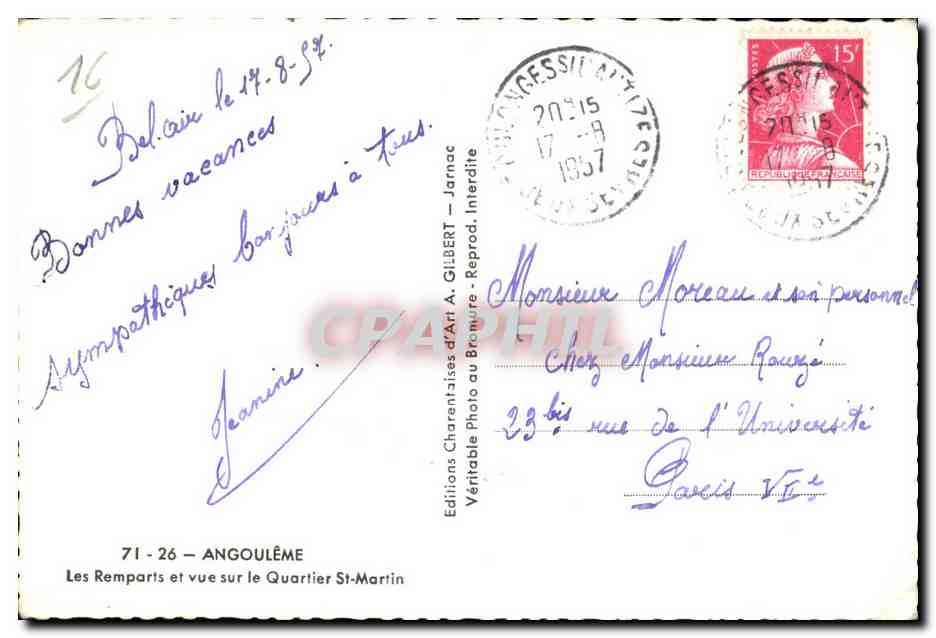 16
Bel-air le 17-8-57.
Bonnes vacances
sympathiques bonjours à tous.
Jeanine.
71 - 26 — ANGOULÊME
Les Remparts et vue sur le Quartier St-Martin
Editions Charentaises d'Art A. GILBERT — Jarnac
Véritable Photo au Bromure - Reprod. Interdite
20H15
17 - 8
1957
DEUX SEVRES
POSTES
15F
REPUBLIQUE FRANÇAISE
20H15
17 8
1957
DEUX SEVRES
Monsieur Moreau et son personnel
Chez Monsieur Rouzé
23 bis rue de l'Université
Paris VIIe
CPAPHIL